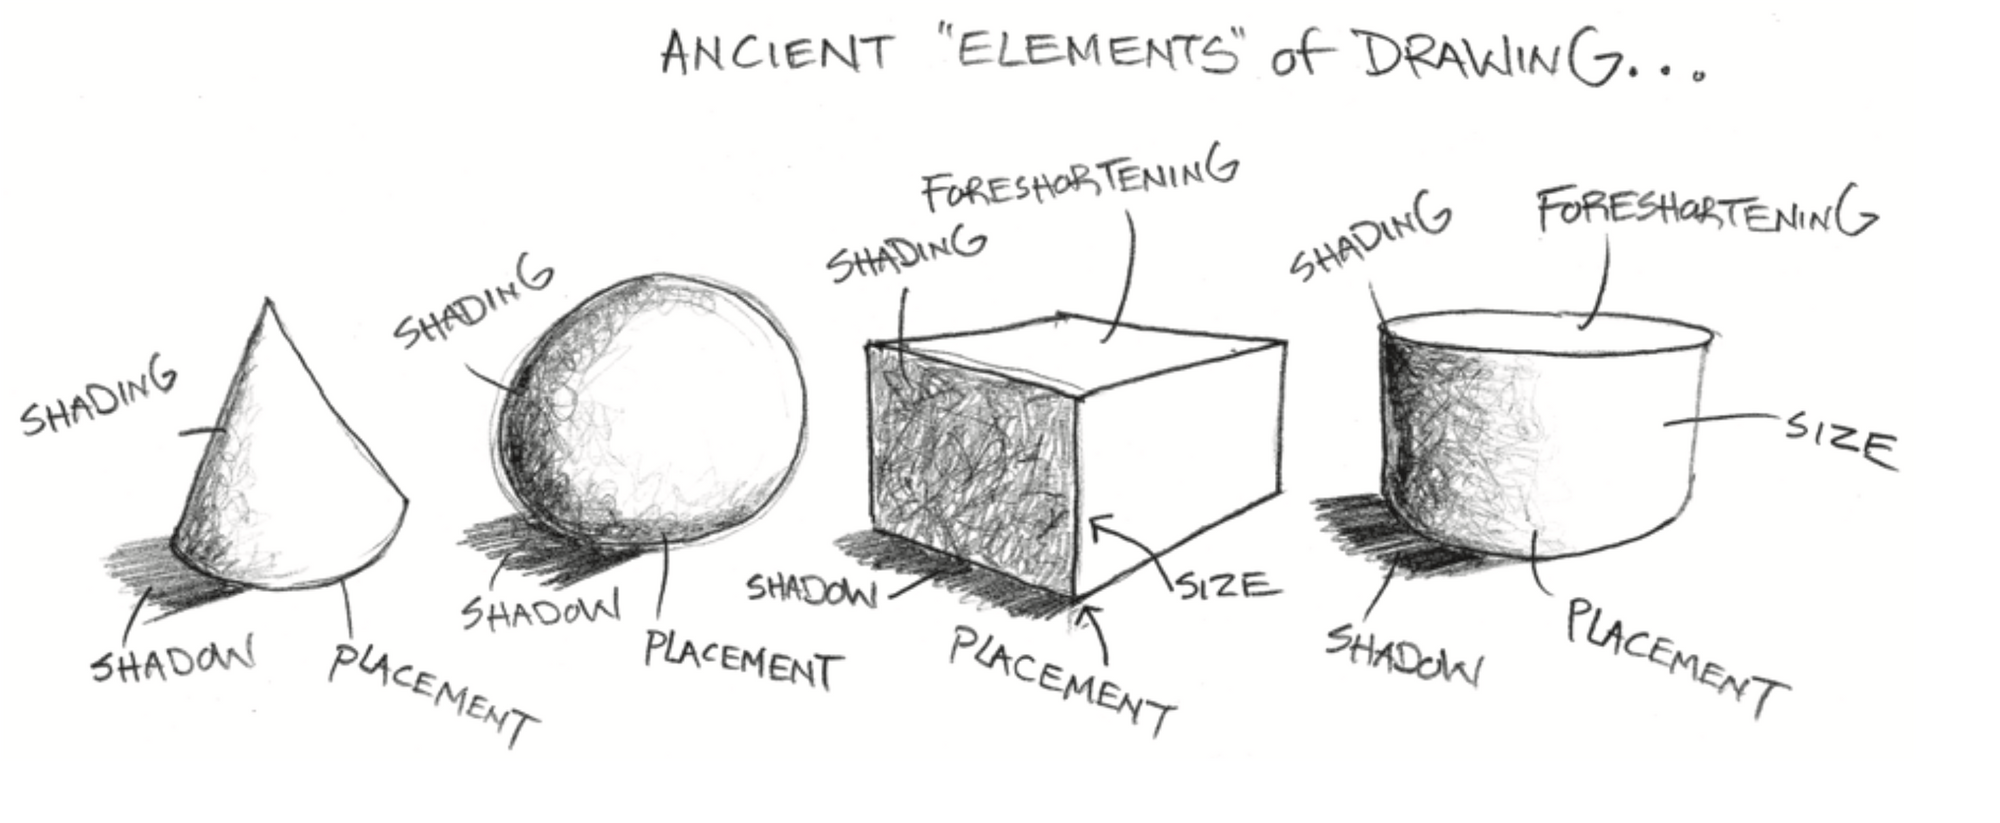 ANCIENT "ELEMENTS" of DRAWING...
SHADING
SHADOW
PLACEMENT
SHADING
SHADOW
PLACEMENT
FORESHORTENING
SHADING
SHADOW
SIZE
PLACEMENT
SHADING
FORESHORTENING
SIZE
SHADOW
PLACEMENT